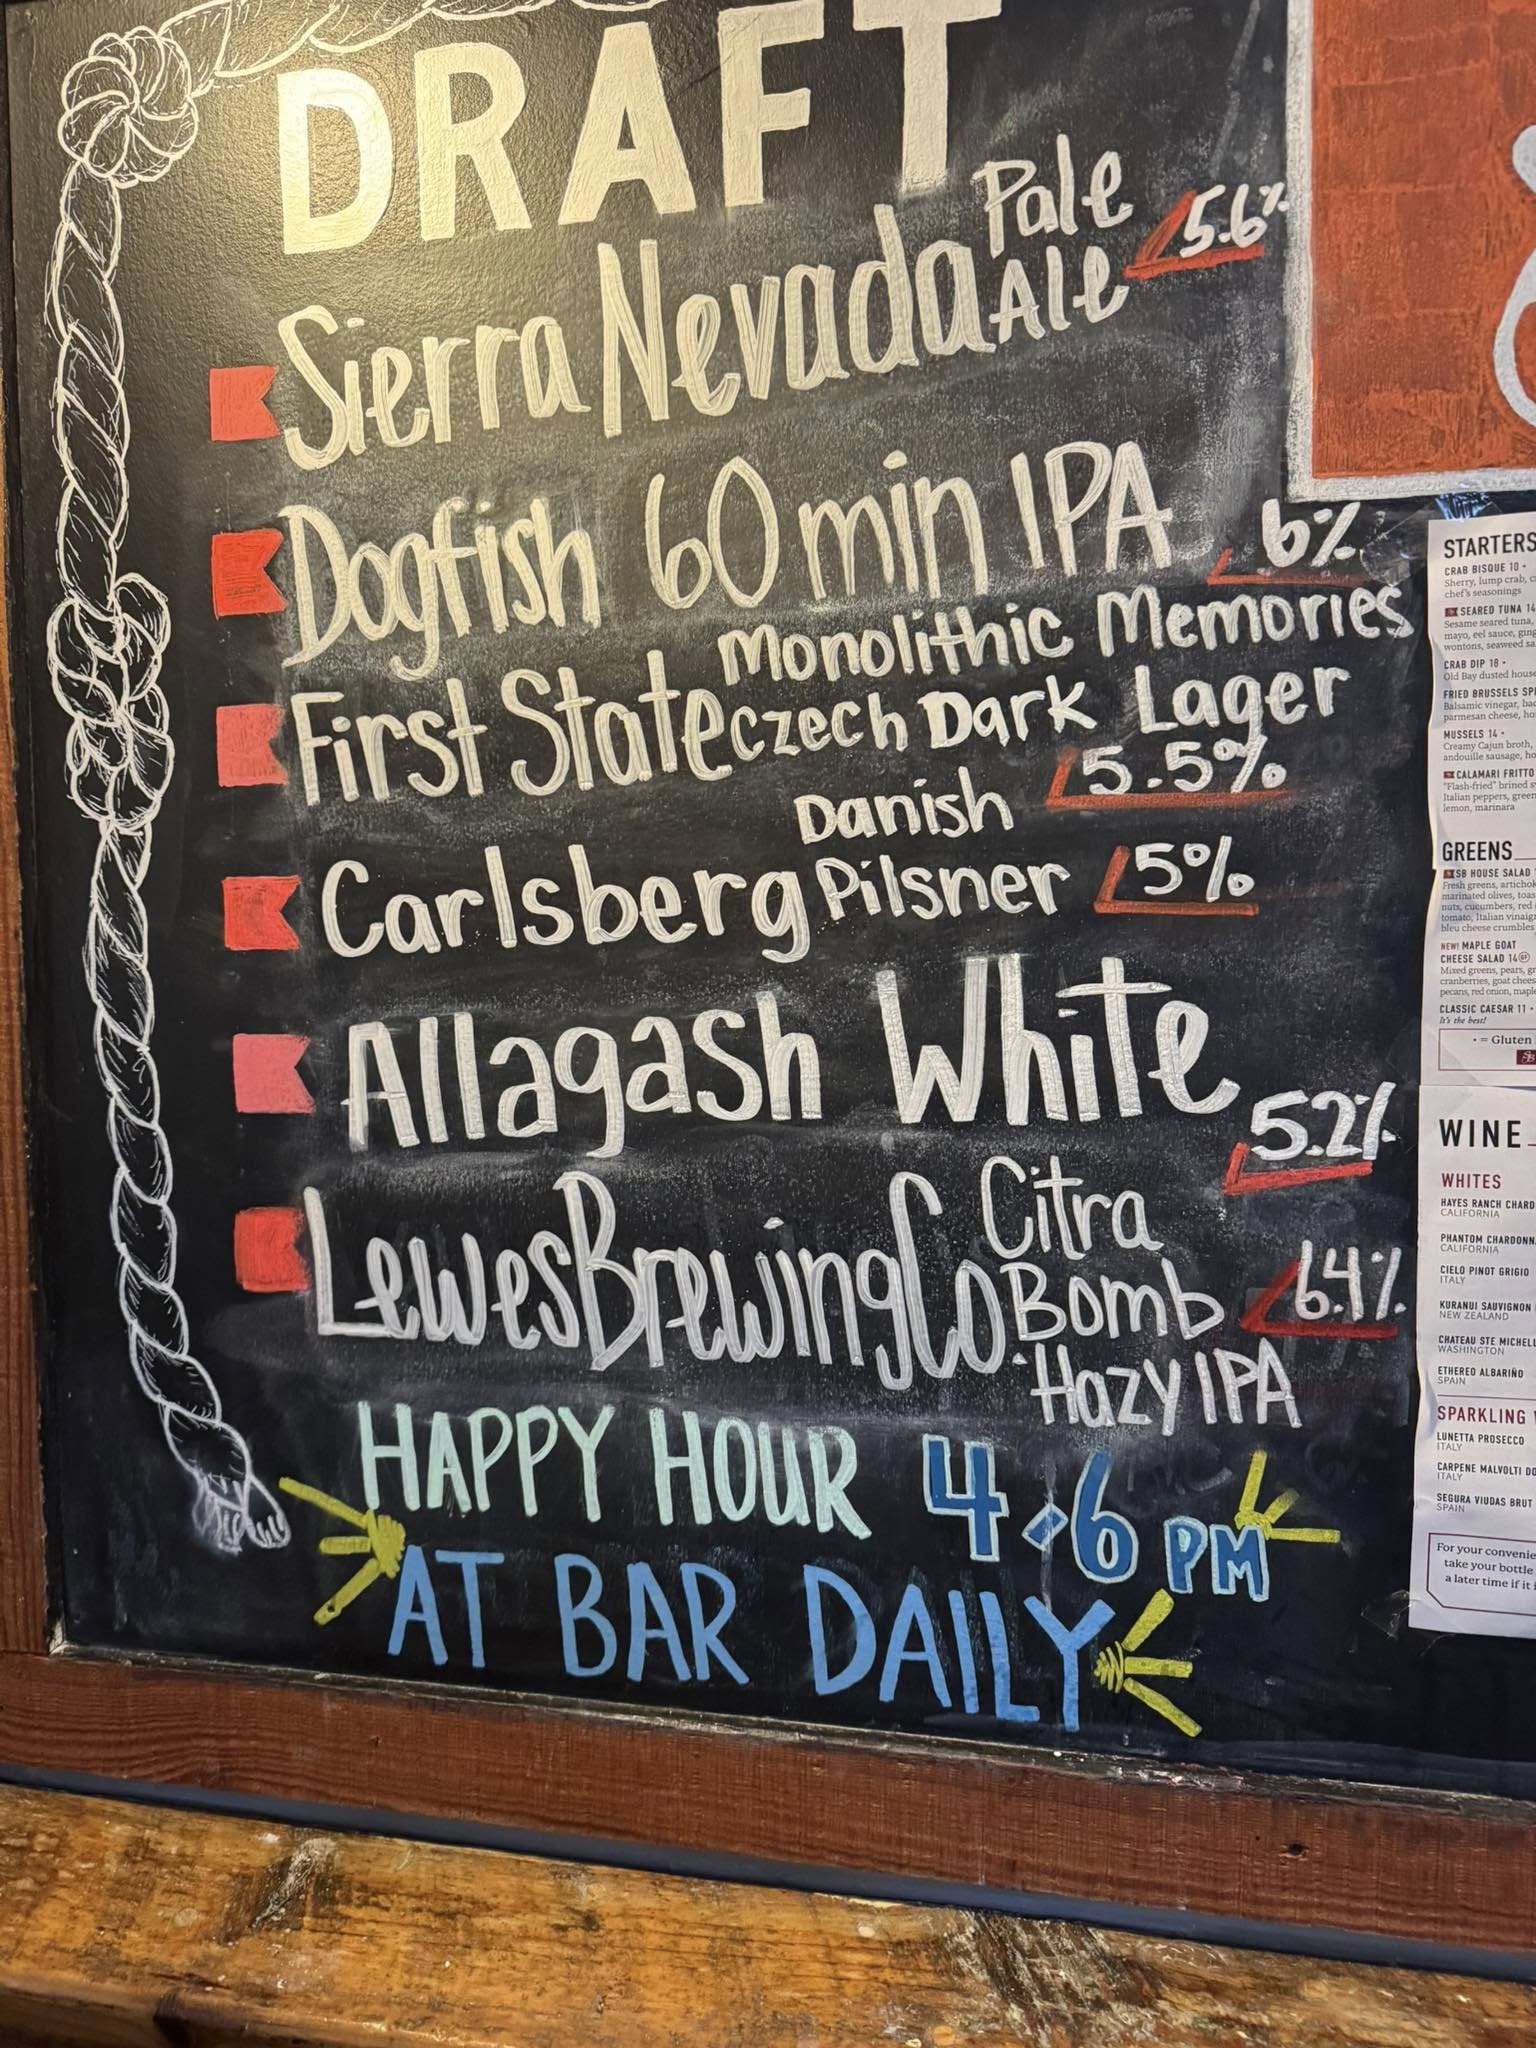 DRAFT
Sierra Nevada Pale Ale 5.6%
Dogfish 60 min IPA 6%
First State Monolithic Memories
Czech Dark Lager
5.5%
Carlsberg Danish Pilsner 5%
Allagash White
5.2%
Lewes Brewing Co. Citra
Bomb 6.4%
Hazy IPA
HAPPY HOUR 4-6 PM
AT BAR DAILY
STARTERS
CRAB BISQUE 10 •
Sherry, lump crab,
chef's seasonings
SEARED TUNA 14
Sesame seared tuna,
mayo, eel sauce,
wontons, seaweed
CRAB DIP 18 •
Old Bay dusted
FRIED BRUSSELS
Balsamic vinegar,
parmesan cheese,
MUSSELS 14 •
Creamy Cajun broth,
andouille sausage,
CALAMARI FRITTO
"Flash-fried" brined
Italian peppers,
lemon, marinara
GREENS
SB HOUSE SALAD
Fresh greens,
marinated olives,
nuts, cucumbers, red
tomato, Italian
bleu cheese crumbles
NEW! MAPLE GOAT
CHEESE SALAD 14
Mixed greens, pears,
cranberries, goat
pecans, red onion,
CLASSIC CAESAR 11 •
It's the best!
• = Gluten
WINE
WHITES
HAYES RANCH CHARD
CALIFORNIA
PHANTOM CHARDONN
CALIFORNIA
CIELO PINOT GRIGIO
ITALY
KURANUI SAUVIGNON
NEW ZEALAND
CHATEAU STE MICHELL
WASHINGTON
ETHEREO ALBARIÑO
SPAIN
SPARKLING
LUNETTA PROSECCO
ITALY
CARPENE MALVOLTI
ITALY
SEGURA VIUDAS BRUT
SPAIN
For your convenie
take your bottle
a later time if it